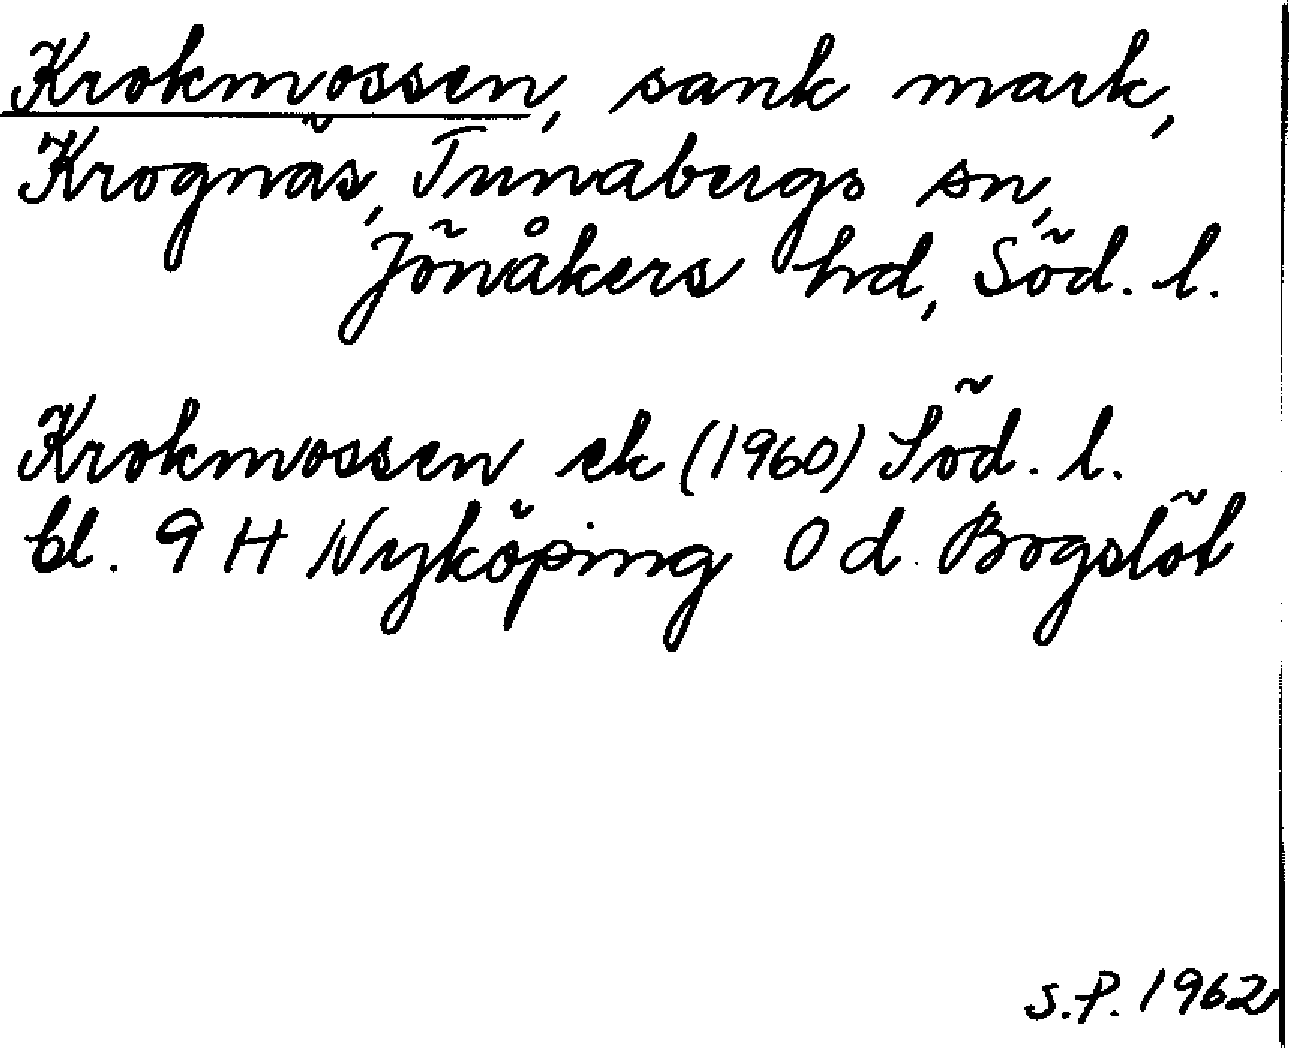 Krokmossen, sank mark,
Krognäs, Tunabergs sn,
Jönåkers hd, Söd. l.
Krokmossen ek (1960) Söd. l.
bl. 9 H Nyköping 0 d. Bogslöt
S.P. 1962